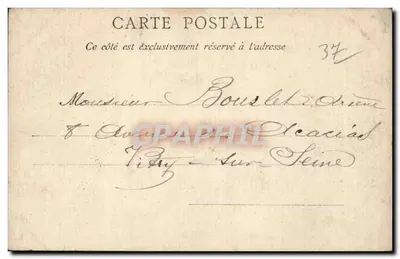 CARTE POSTALE
Ce côté est exclusivement réservé à l'adresse
37
Monsieur
8 des Acacias
Vitry-sur-Seine